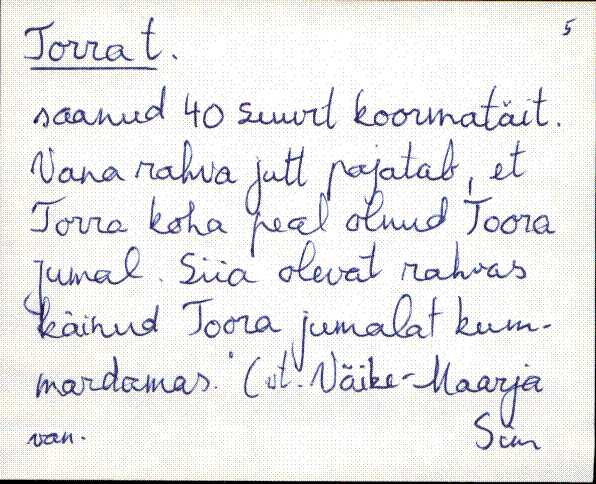 5
Torra t.
saanud 40 suurt koormatäit.
Vana rahva jutt pajatab, et
Torra koha peal olnud Toora
jumal. Siia olevat rahvas
käinud Toora jumalat kum-
mardamas." (vt. Väike-Maarja
van. Sim